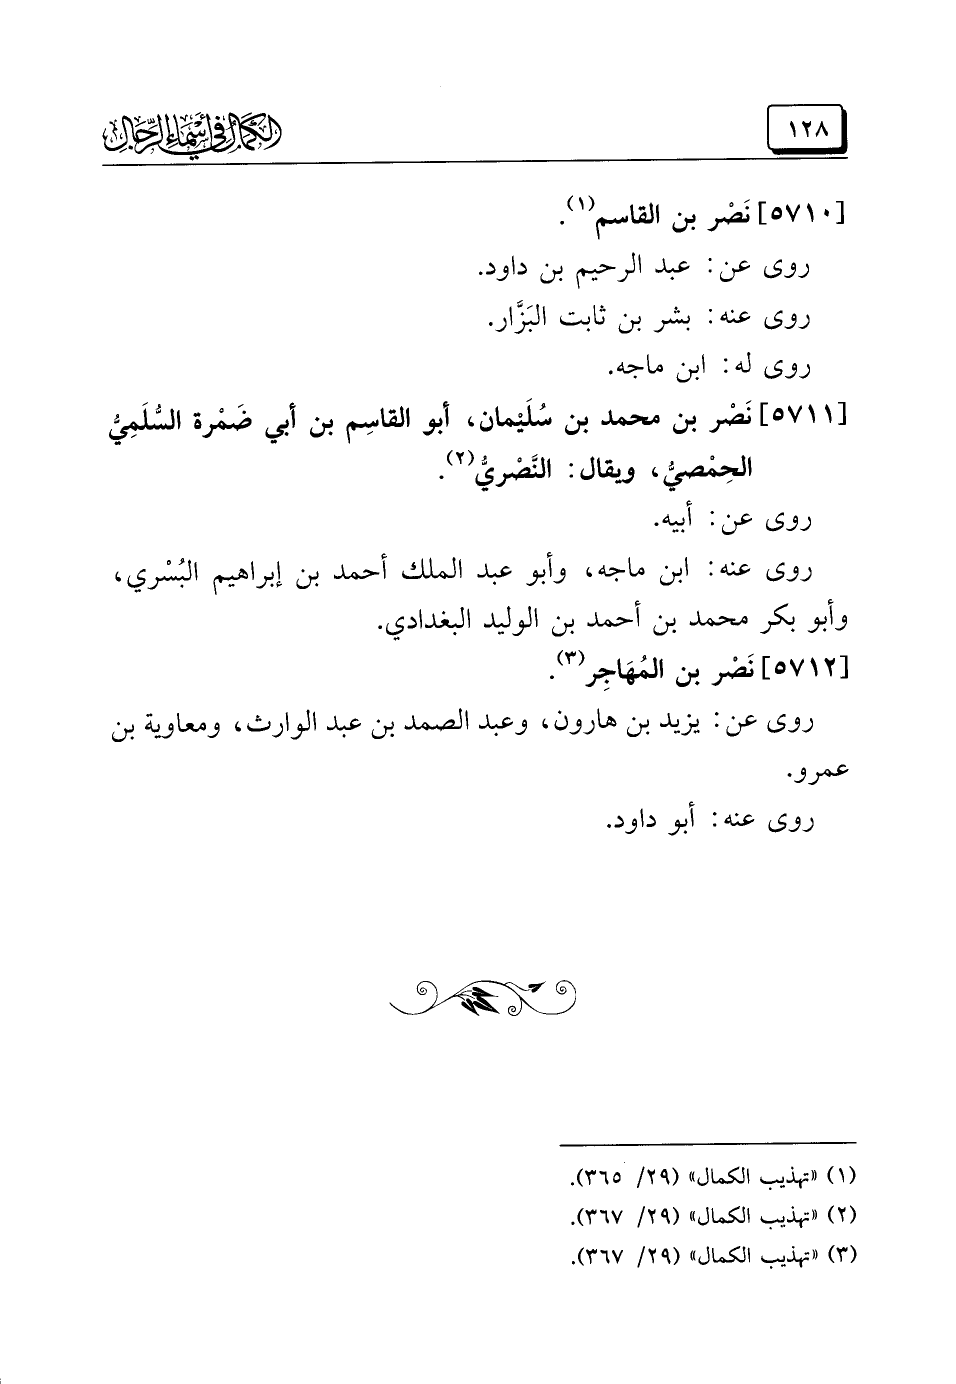 ١٢٨
الكمال في أسماء الرجال
[٥٧١٠] نَصْر بن القاسم(١).
روى عن: عبد الرحيم بن داود.
روى عنه: بشر بن ثابت البَزَّار.
روى له: ابن ماجه.
[٥٧١١] نَصْر بن محمد بن سُلَيْمان، أبو القاسِم بن أبي ضَمْرة السُّلَمِيُّ
الحِمْصيُّ، ويقال: النَّصْريُّ(٢).
روى عن: أبيه.
روى عنه: ابن ماجه، وأبو عبد الملك أحمد بن إبراهيم البُسْري،
وأبو بكر محمد بن أحمد بن الوليد البغدادي.
[٥٧١٢] نَصْر بن المُهَاجِر(٣).
روى عن: يزيد بن هارون، وعبد الصمد بن عبد الوارث، ومعاوية بن
عمرو.
روى عنه: أبو داود.
(١) «تهذيب الكمال» (٢٩/ ٣٦٥).
(٢) «تهذيب الكمال» (٢٩/ ٣٦٧).
(٣) «تهذيب الكمال» (٢٩/ ٣٦٧).